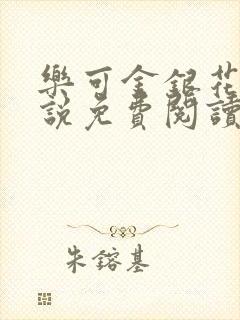 樂可金銀花
說免費閱讀
朱鎔基